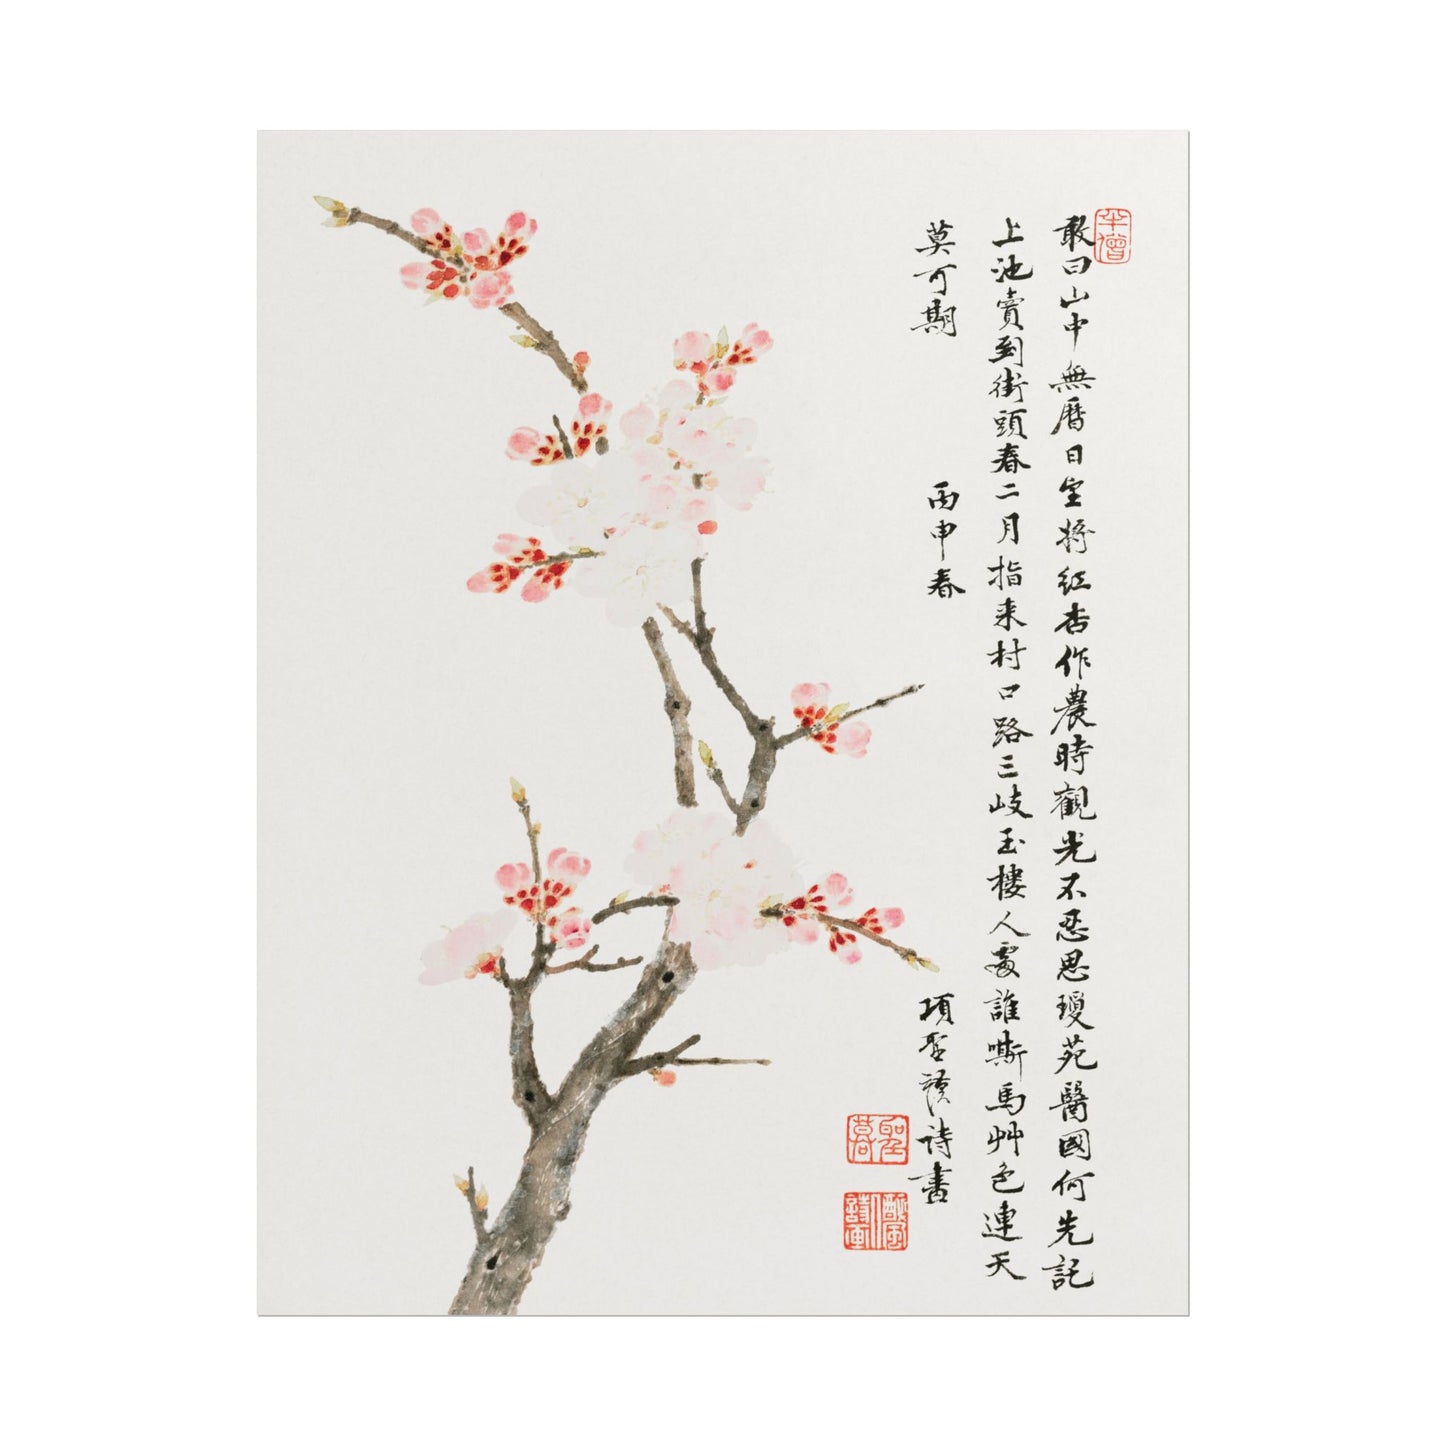 半僧
敢曰山中無曆日將紅杏作農時觀光不忍思瓊苑醫國何先託
上池賣到街頭春二月指來村口路三岐玉樓人處誰嘶馬艸色連天
莫可期 丙申春 項聖謨詩畫